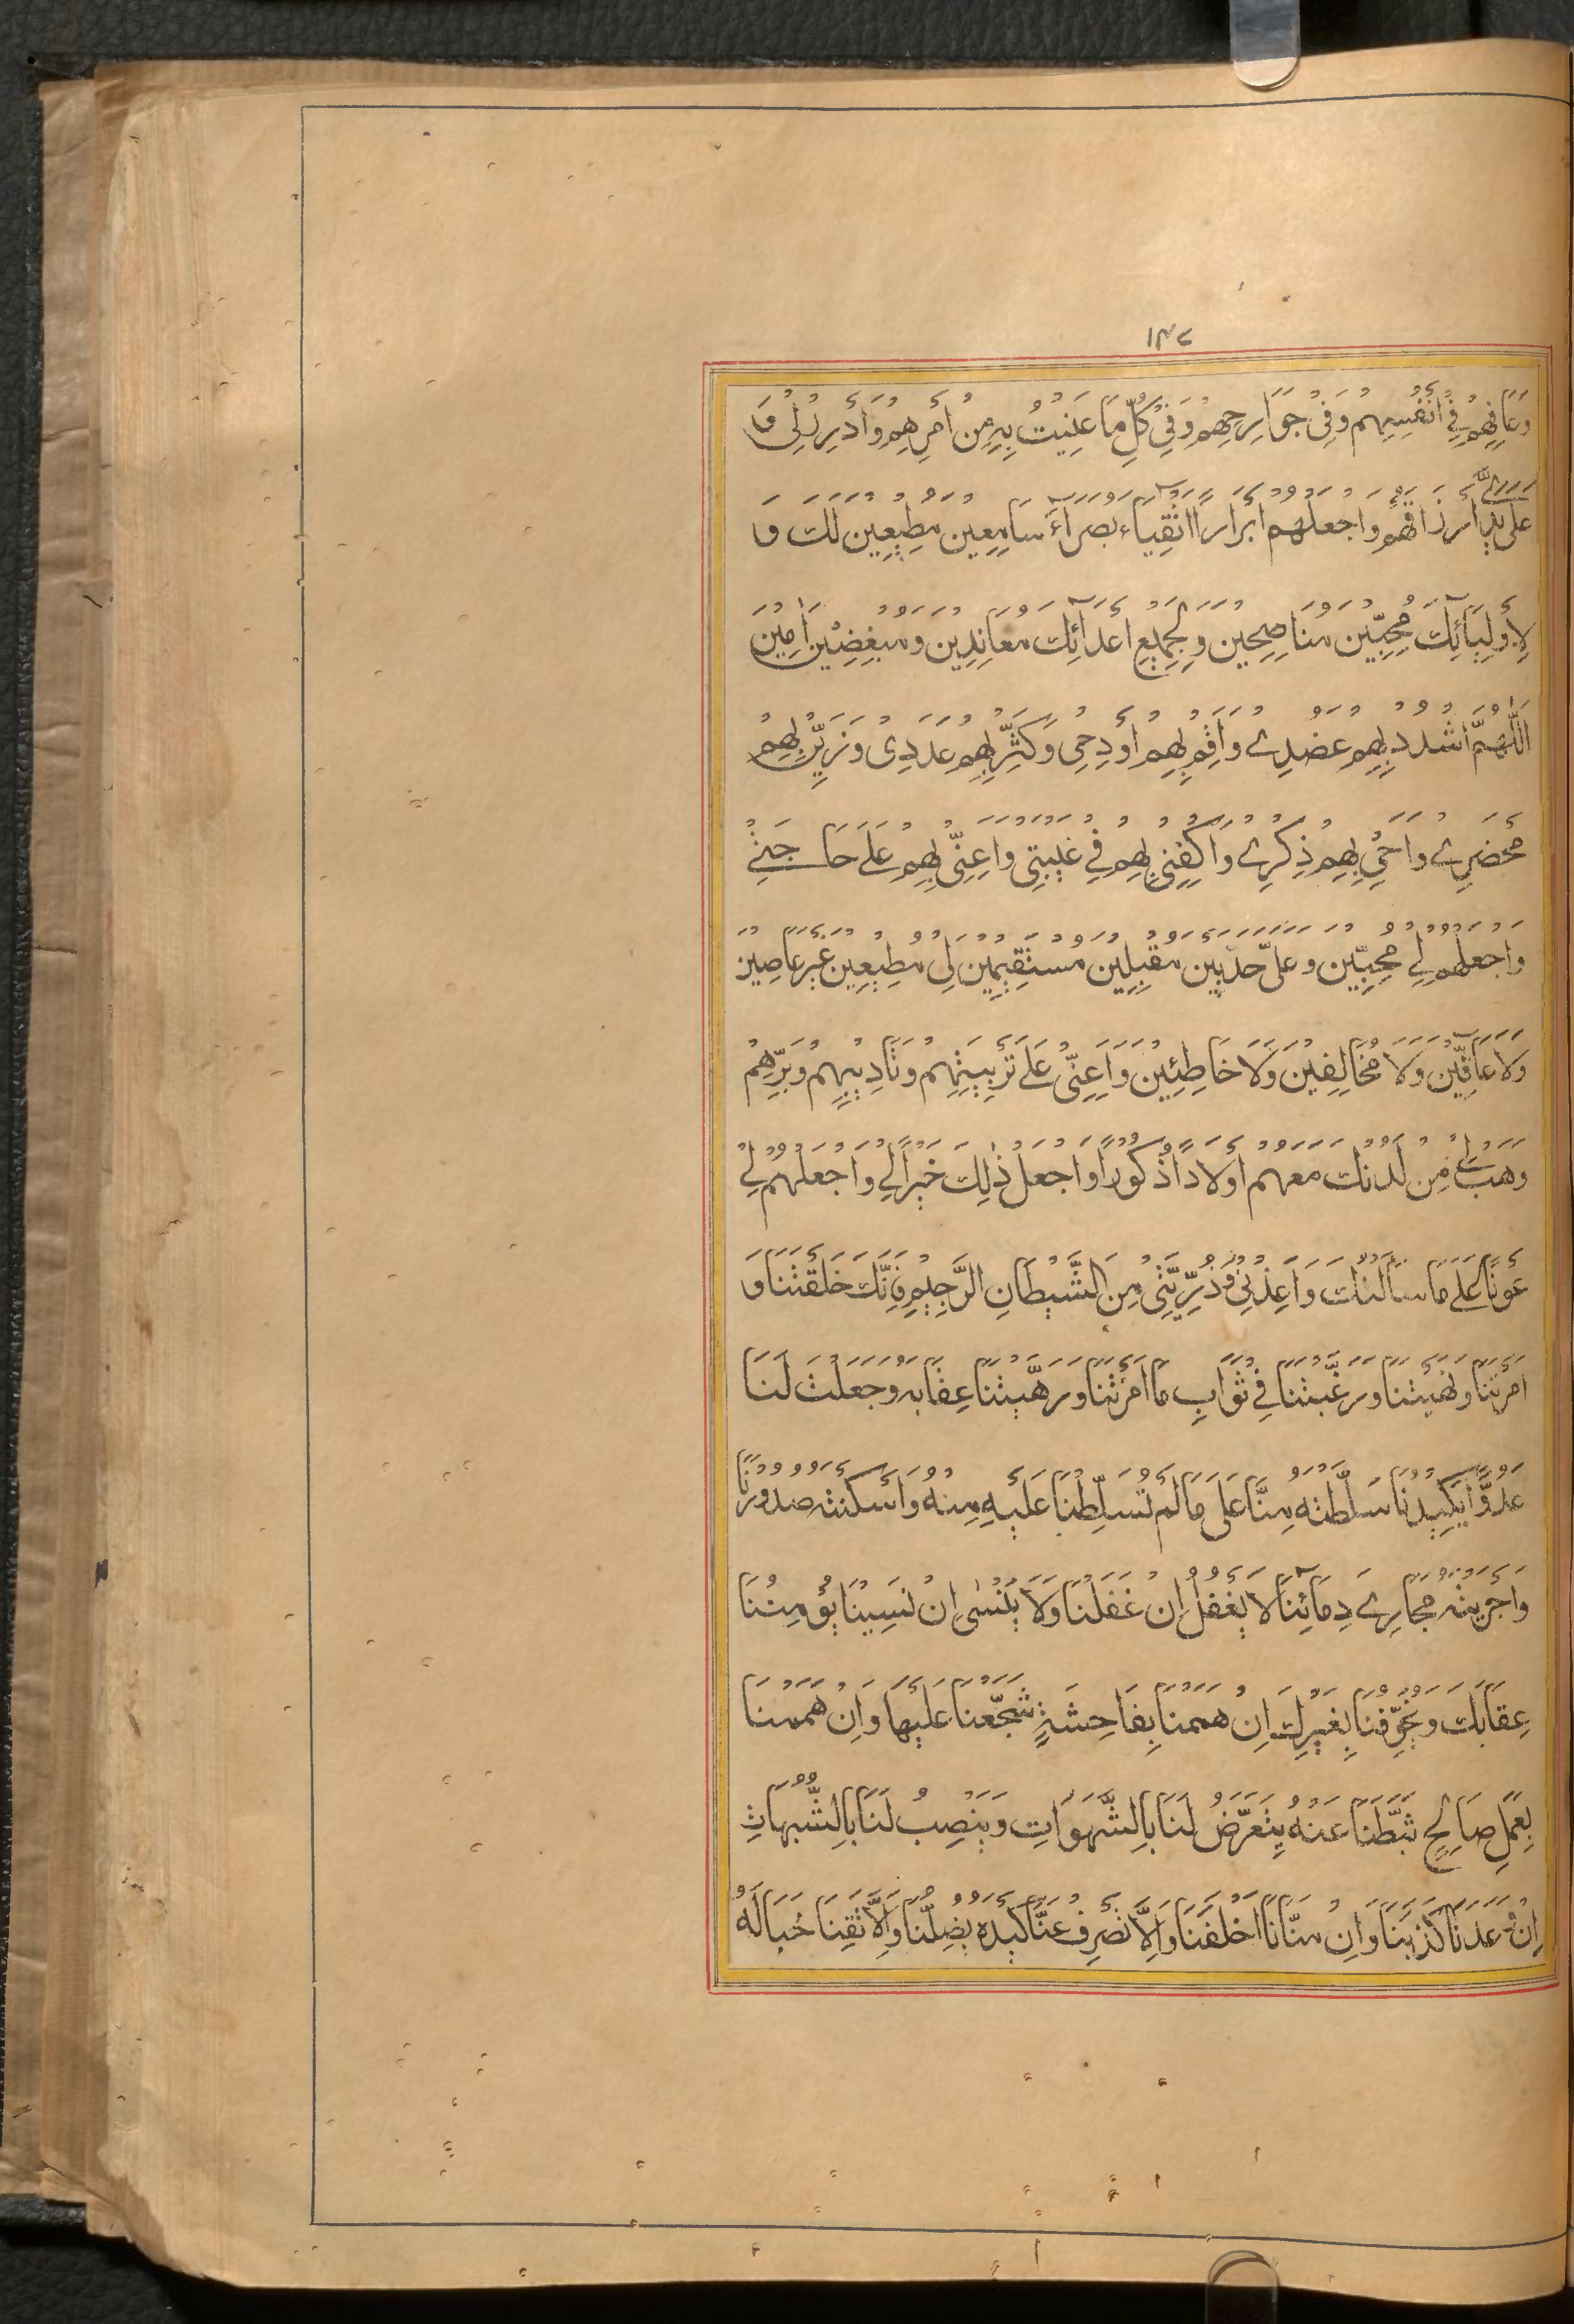 ١٣٢
وَعَافِهِمْ فِي أَنْفُسِهِمْ وَفِي جَوَارِحِهِمْ وَفِي كُلِّ مَا عَنِيتُ بِهِ مِنْ أَمْرِهِمْ وَأَدْرِرْ لِي وَ
عَلَى يَدِي أَرْزَاقَهُمْ وَاجْعَلْهُمْ أَبْرَارًا أَتْقِيَاءَ بُصَرَاءَ سَامِعِينَ مُطِيعِينَ لَكَ وَ
لِأَوْلِيَائِكَ مُحِبِّينَ مُنَاصِحِينَ وَلِجَمِيعِ أَعْدَائِكَ مُعَانِدِينَ وَمُبْغِضِينَ آمِينَ
اَللّٰهُمَّ اشْدُدْ بِهِمْ عَضُدِي وَأَقِمْ بِهِمْ أَوَدِي وَكَثِّرْ بِهِمْ عَدَدِي وَزَيِّنْ بِهِمْ
مَحْضَرِي وَأَحْيِ بِهِمْ ذِكْرِي وَاكْفِنِي بِهِمْ فِي غَيْبَتِي وَأَعِنِّي بِهِمْ عَلَى حَاجَتِي
وَاجْعَلْهُمْ لِي مُحِبِّينَ وَعَلَيَّ حَدِبِينَ مُقْبِلِينَ مُسْتَقِيمِينَ لِي مُطِيعِينَ غَيْرَ عَاصِينَ
وَلَا عَاقِّينَ وَلَا مُخَالِفِينَ وَلَا خَاطِئِينَ وَأَعِنِّي عَلَى تَرْبِيَتِهِمْ وَتَأْدِيبِهِمْ وَبِرِّهِمْ
وَهَبْ لِي مِنْ لَدُنْكَ مَعَهُمْ أَوْلَادًا ذُكُورًا وَاجْعَلْ ذٰلِكَ خَيْرًا لِي وَاجْعَلْهُمْ لِي
عَوْنًا عَلَى مَا سَأَلْتُكَ وَأَعِذْنِي وَذُرِّيَّتِي مِنَ الشَّيْطَانِ الرَّجِيمِ فَإِنَّكَ خَلَقْتَنَا وَ
أَمَرْتَنَا وَنَهَيْتَنَا وَرَغَّبْتَنَا فِي ثَوَابِ مَا أَمَرْتَنَا وَرَهَّبْتَنَا عِقَابَهُ وَجَعَلْتَ لَنَا
عَدُوًّا يَكِيدُنَا سَلَّطْتَهُ مِنَّا عَلَى مَا لَمْ تُسَلِّطْنَا عَلَيْهِ مِنْهُ وَأَسْكَنْتَهُ صُدُورَنَا
وَأَجْرَيْتَهُ مَجَارِيَ دِمَائِنَا لَا يَغْفُلُ إِنْ غَفَلْنَا وَلَا يَنْسَى إِنْ نَسِينَا يُؤْمِنُنَا
عِقَابَكَ وَيُخَوِّفُنَا بِغَيْرِكَ إِنْ هَمَمْنَا بِفَاحِشَةٍ شَجَّعَنَا عَلَيْهَا وَإِنْ هَمَمْنَا
بِعَمَلٍ صَالِحٍ ثَبَّطَنَا عَنْهُ يَتَعَرَّضُ لَنَا بِالشَّهَوَاتِ وَيَنْصِبُ لَنَا بِالشُّبُهَاتِ
إِنْ وَعَدَنَا كَذَبَنَا وَإِنْ مَنَّانَا أَخْلَفَنَا وَإِلَّا تَصْرِفْ عَنَّا كَيْدَهُ يُضِلَّنَا وَإِلَّا تَقِنَا خَبَالَهُ